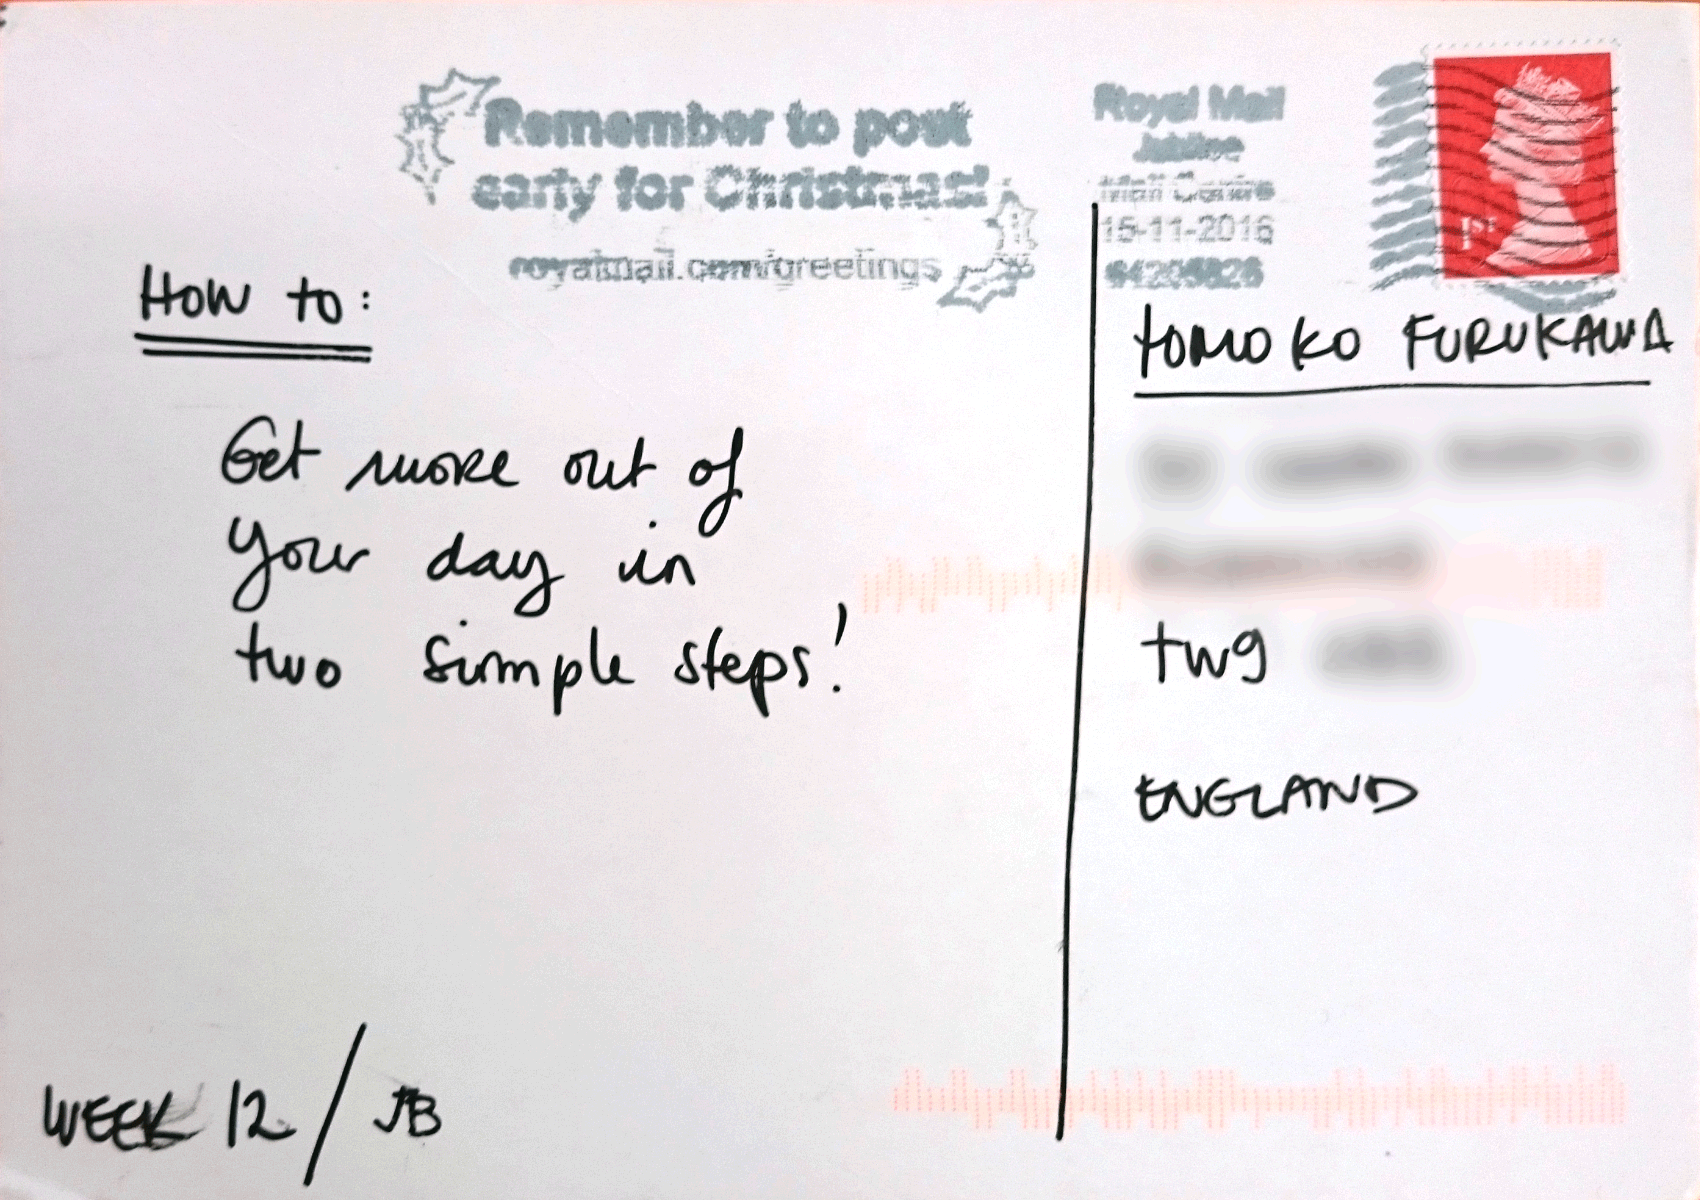 Remember to post
early for Christmas!
royalmail.com/greetings
Royal Mail
Jubilee
Mail Centre
15-11-2016
1ST
How to:
Get more out of
your day in
two simple steps!
WEEK 12 / JB
TOMOKO FURUKAWA
TW9
ENGLAND